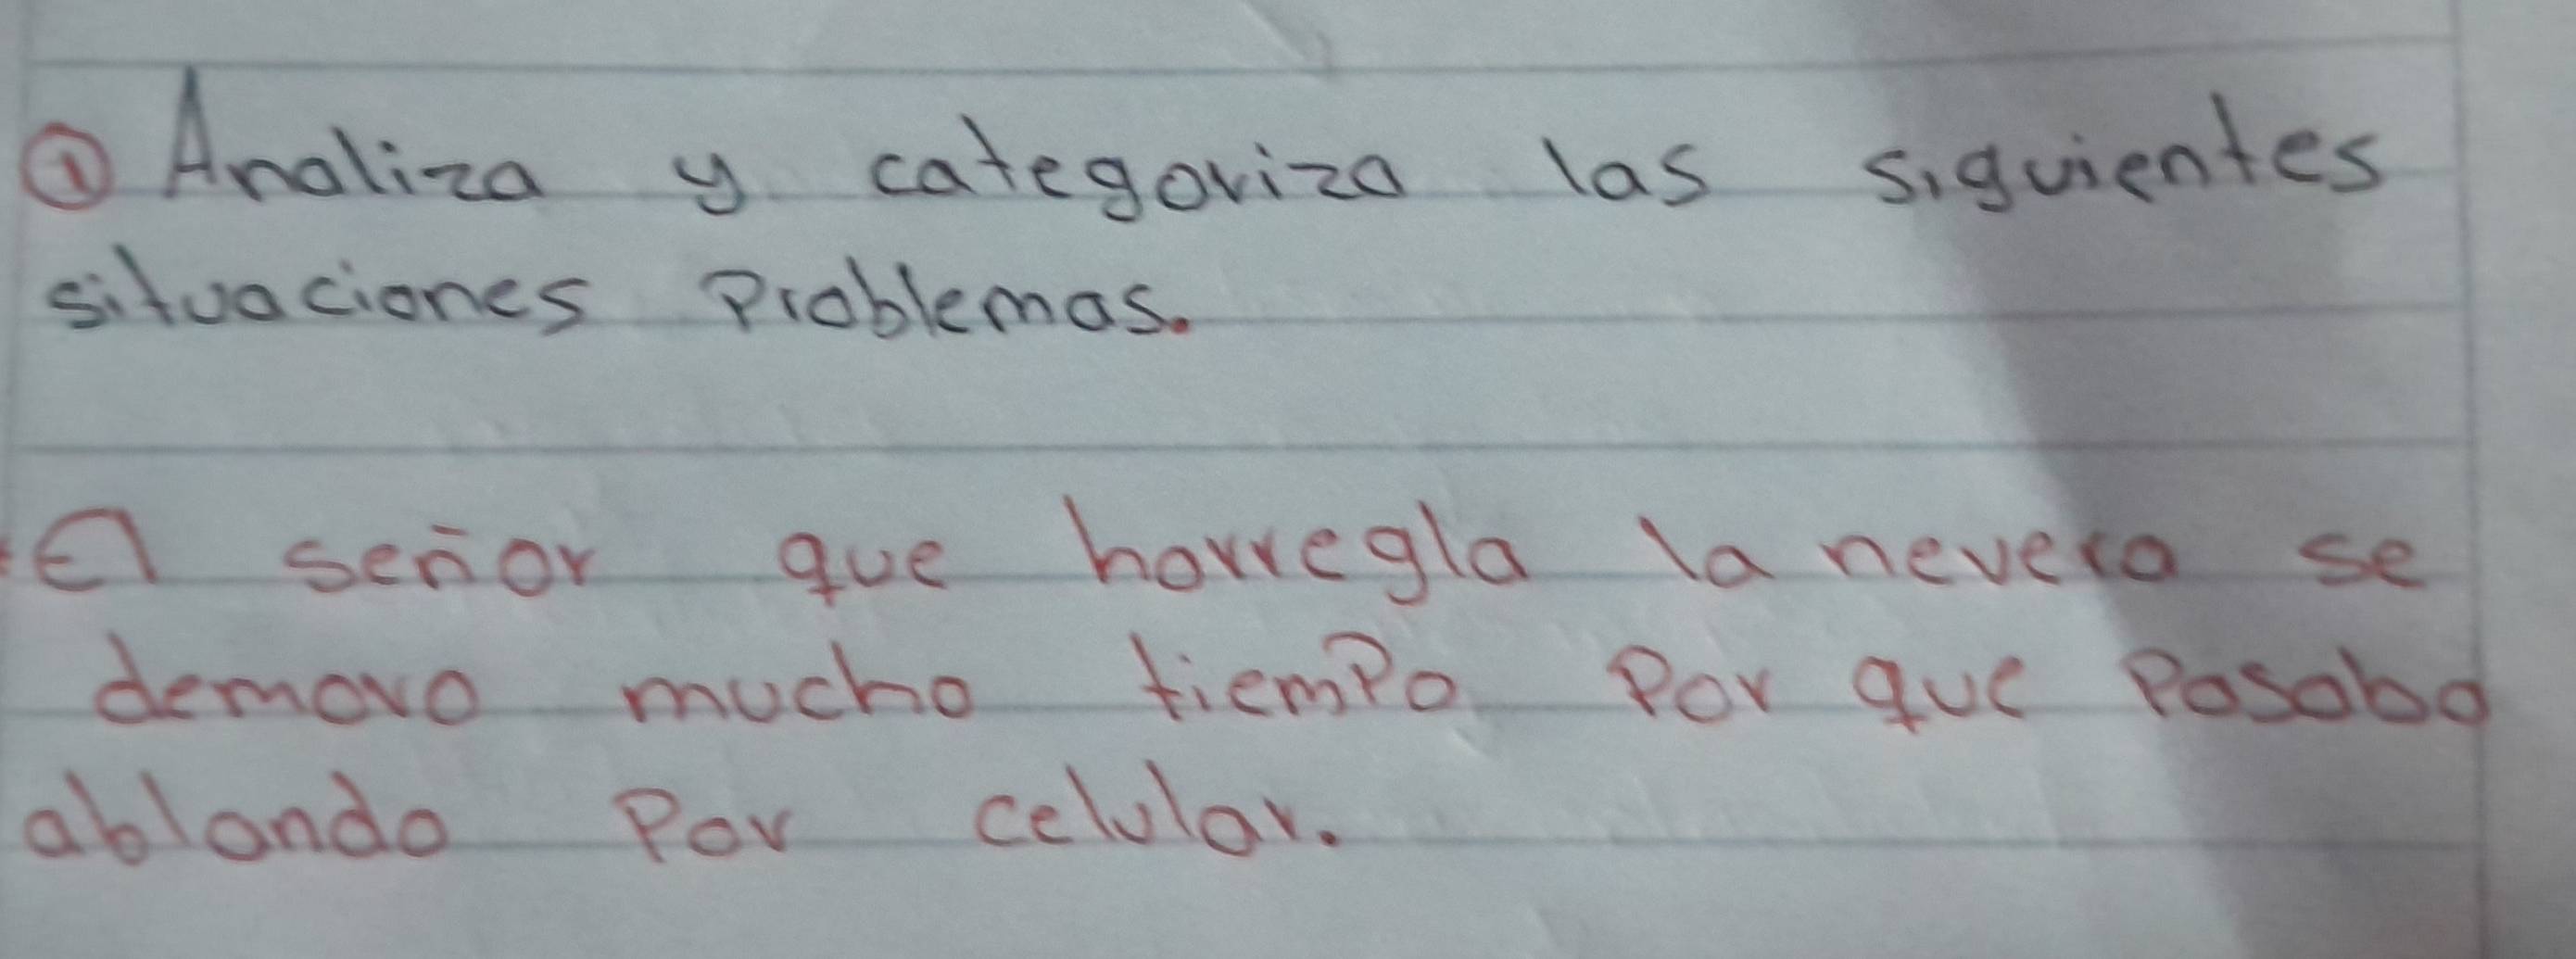 ① Analiza y categoriza las siguientes
situaciones Problemas.
El señor que horregla la nevera se
demoro mucho tiempo Por que Pasaba
ablando Por celular.